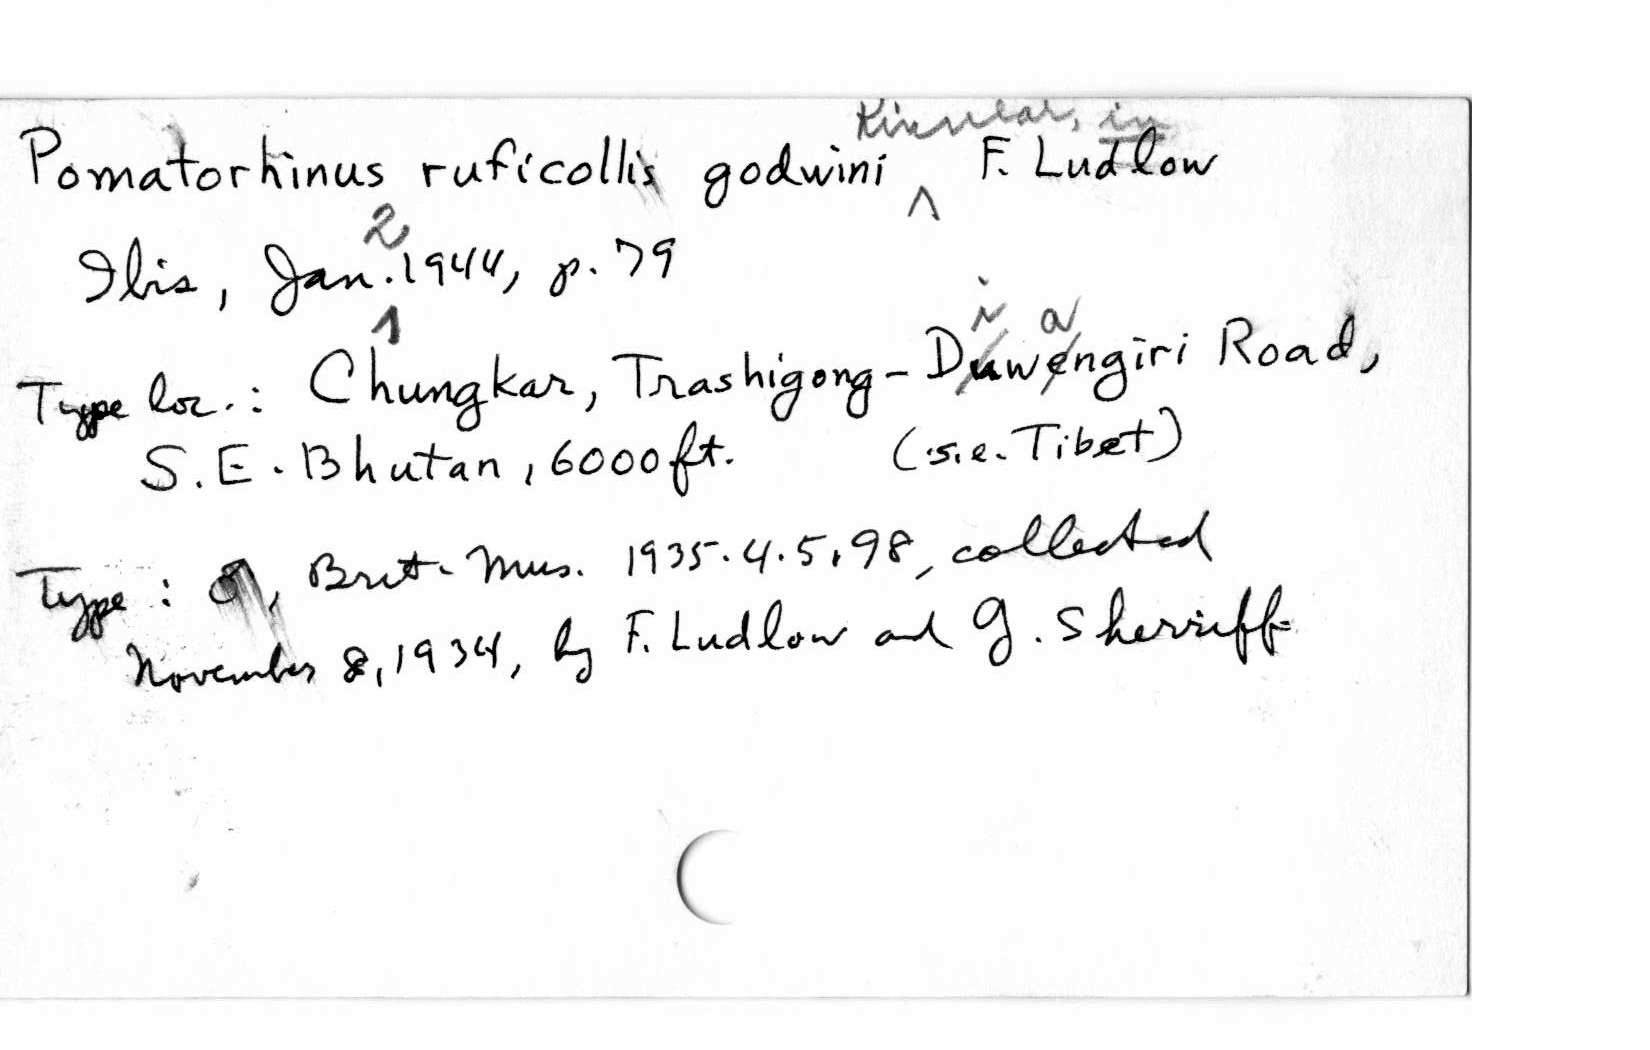 Kinnear, in
Pomatorhinus ruficollis godwini ^ F. Ludlow
2
Ibis, Jan. ^ 1944, p. 79
i a
Type loc.: Chungkar, Trashigong-Duwengiri Road,
S.E. Bhutan, 6000 ft. (s.e. Tibet)
Type: ♂, Brit. Mus. 1935.4.5.98, collected
November 8, 1934, by F. Ludlow and G. Sherriff